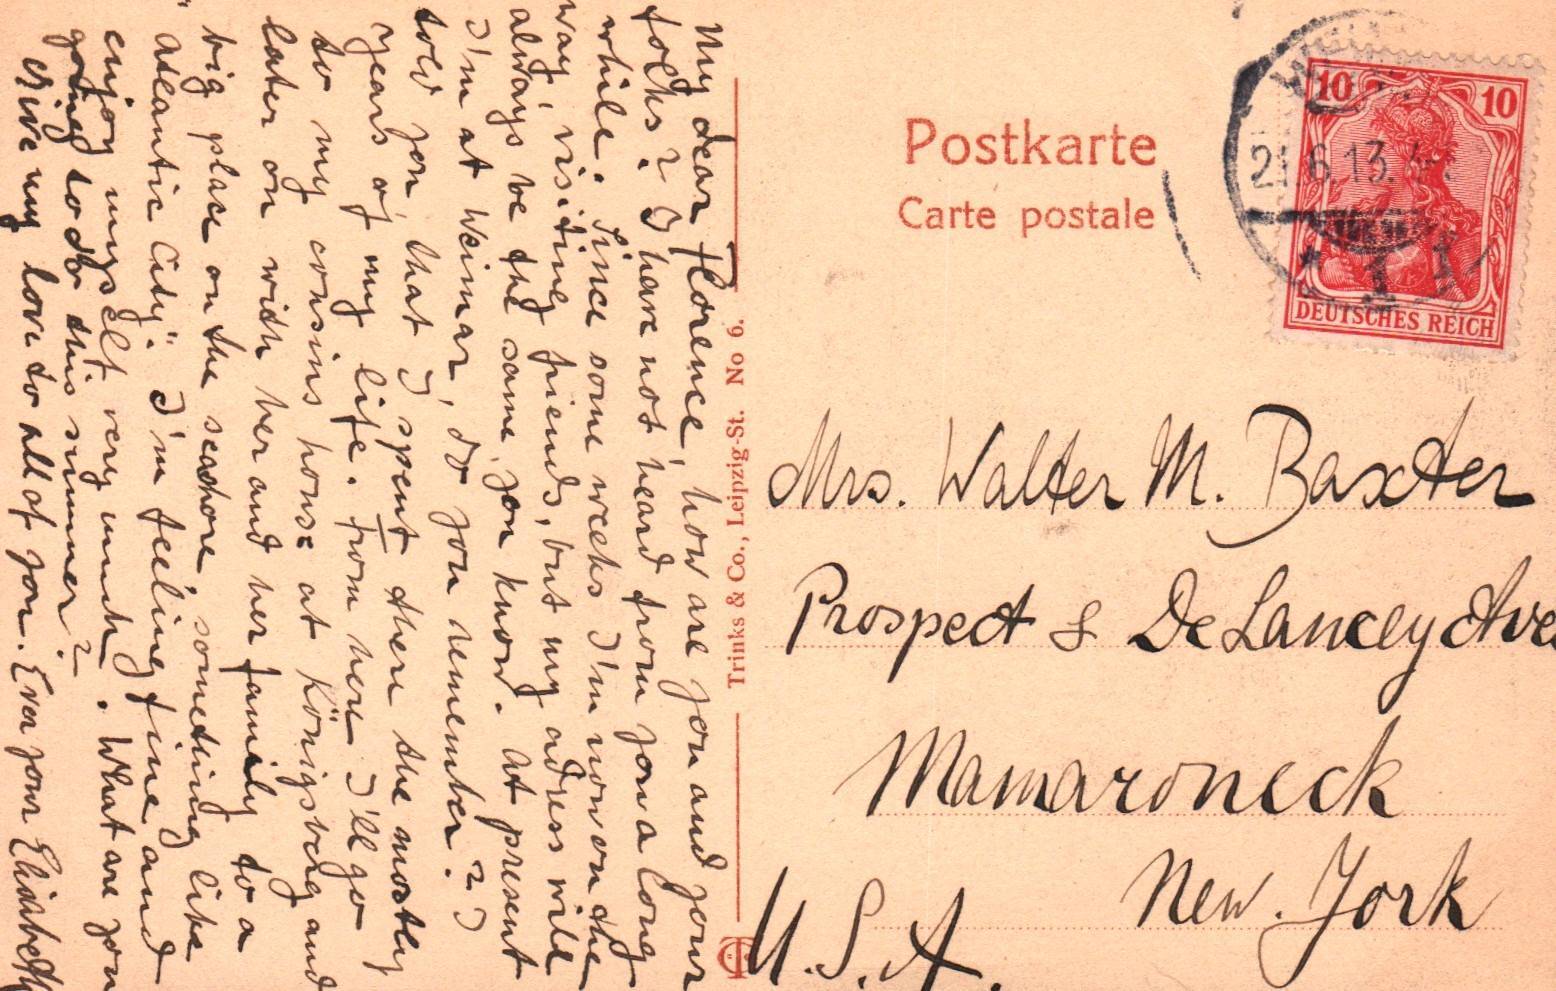 My dear Florence, how are you and your
folks? I have not heard from you a long
while. Since some weeks I'm now on the
way, visiting friends, but my adress will
always be the same, you know. At present
I'm at Weimar, do you remember? I
told you, that I spent there the mostly
years of my life. From here I'll go
to my cousins house at Königsberg and
later on with her and her family to a
big place on the seashore, something like
"Atlantic City". I'm feeling fine and
enjoy myself very much. What are you
going to do this summer?
Give my love to all of you. Ever your Elisabeth
Trinks & Co., Leipzig-St. No 6.
Postkarte
Carte postale
10 10
DEUTSCHES REICH
21.6.13.
1
Mrs. Walter M. Baxter
Prospect & De Lancey Aves
Mamaroneck
New. York
U.S.A.